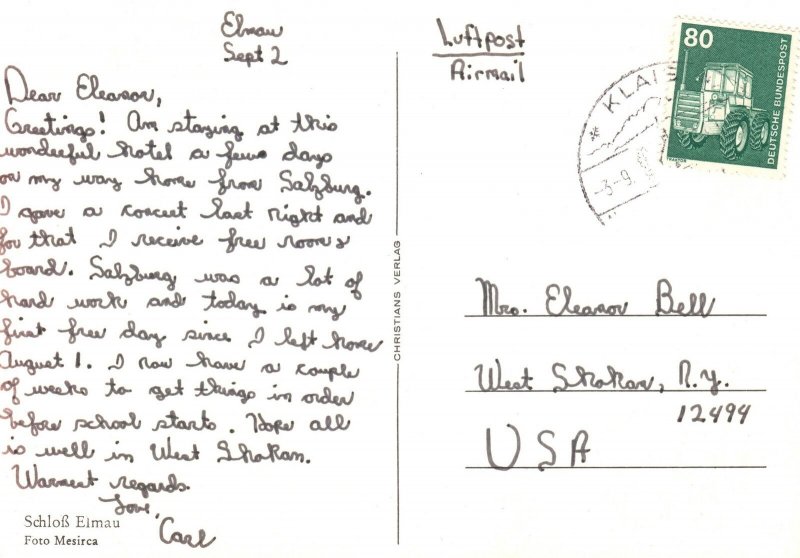 Elmau
Sept 2
Dear Eleanor,
Greetings! Am staying at this
wonderful hotel a few days
on my way home from Salzburg.
I gave a concert last night and
for that I receive free room &
board. Salzburg was a lot of
hard work and today is my
first free day since I left home
August 1. I now have a couple
of weeks to get things in order
before school starts. Hope all
is well in West Shokan.
Warmest regards.
Love,
Carl
Schloß Elmau
Foto Mesirca
CHRISTIANS VERLAG
Luftpost
Airmail
* KLAIS
-3.-9.
80
DEUTSCHE BUNDESPOST
Mrs. Eleanor Bell
West Shokan, N.Y.
12494
USA